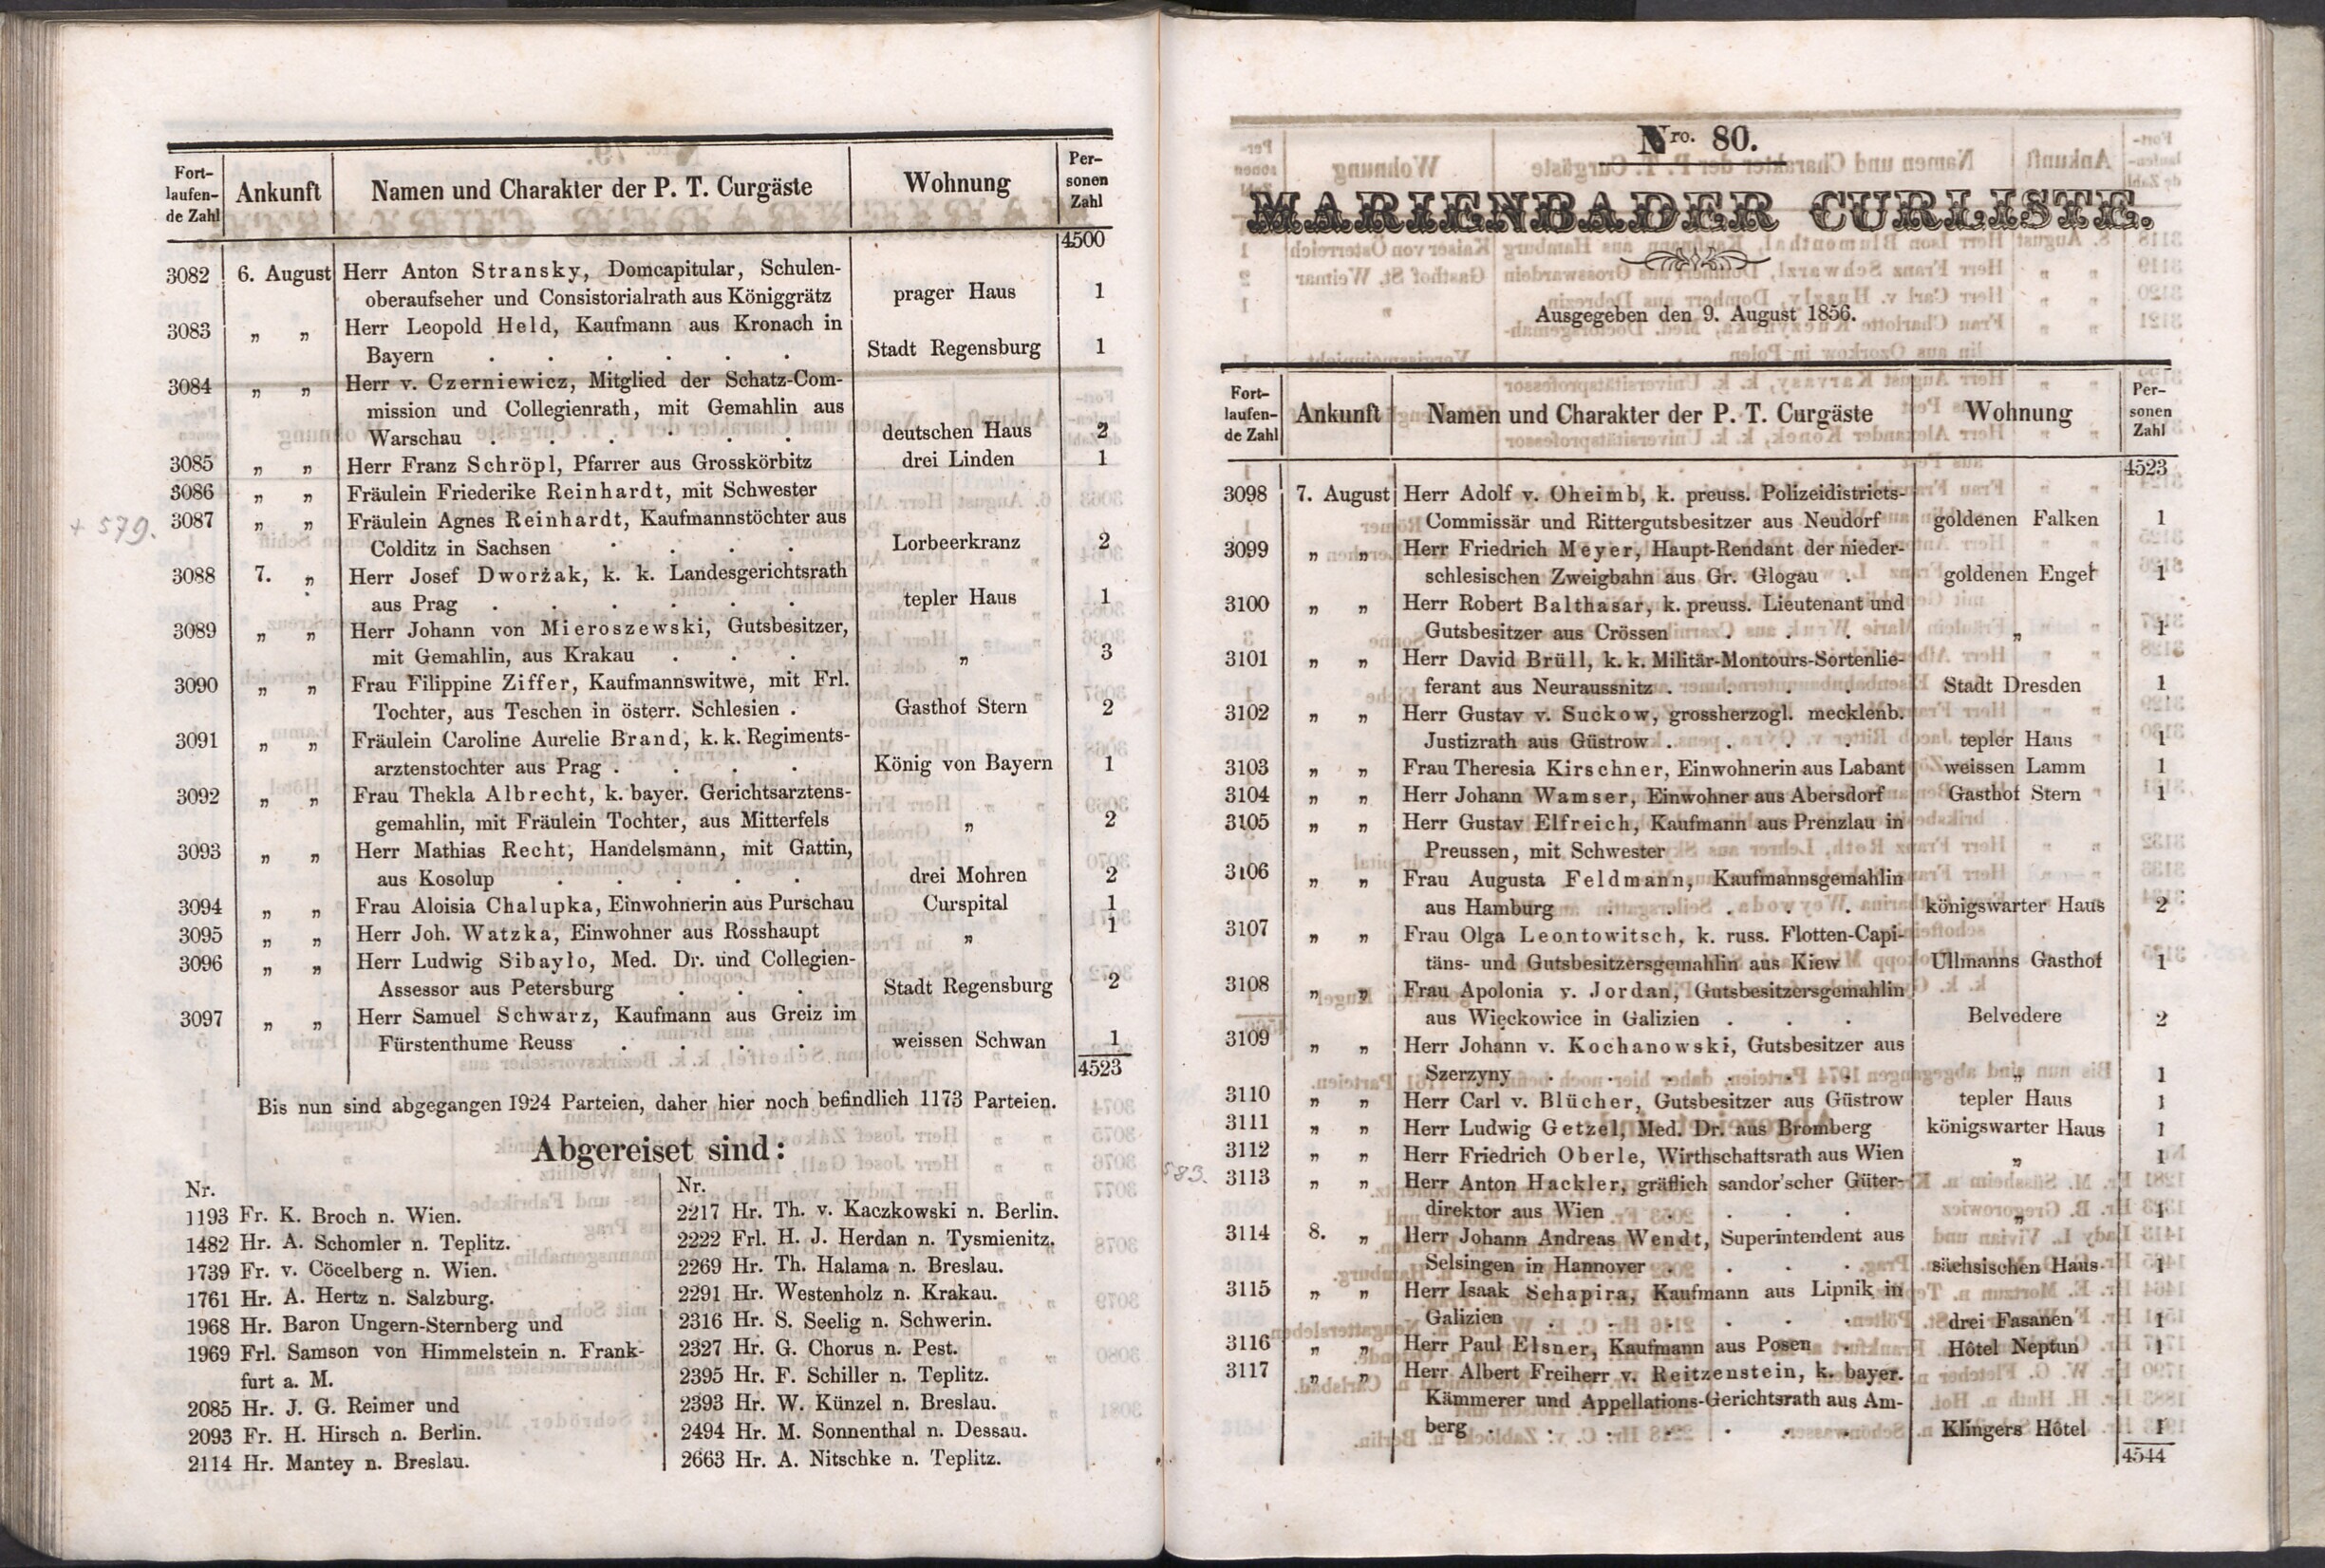 Fort-
laufen-
de Zahl Ankunft Namen und Charakter der P. T. Curgäste Wohnung Per-
sonen
Zahl
4500
3082 6. August Herr Anton Stransky, Domcapitular, Schulen-
oberaufseher und Consistorialrath aus Königgrätz prager Haus 1
3083 „ „ Herr Leopold Held, Kaufmann aus Kronach in
Bayern . . . . . . Stadt Regensburg 1
3084 „ „ Herr v. Czerniewicz, Mitglied der Schatz-Com-
mission und Collegienrath, mit Gemahlin aus
Warschau . . . . . . deutschen Haus 2
3085 „ „ Herr Franz Schröpl, Pfarrer aus Grosskörbitz drei Linden 1
3086 „ „ Fräulein Friederike Reinhardt, mit Schwester
+ 579. 3087 „ „ Fräulein Agnes Reinhardt, Kaufmannstöchter aus
Colditz in Sachsen . . . . Lorbeerkranz 2
3088 7. „ Herr Josef Dworżak, k. k. Landesgerichtsrath
aus Prag . . . . . . tepler Haus 1
3089 „ „ Herr Johann von Mieroszewski, Gutsbesitzer,
mit Gemahlin, aus Krakau . . . „ 3
3090 „ „ Frau Filippine Ziffer, Kaufmannswitwe, mit Frl.
Tochter, aus Teschen in österr. Schlesien . Gasthof Stern 2
3091 „ „ Fräulein Caroline Aurelie Brand, k. k. Regiments-
arztenstochter aus Prag . . . . König von Bayern 1
3092 „ „ Frau Thekla Albrecht, k. bayer. Gerichtsarztens-
gemahlin, mit Fräulein Tochter, aus Mitterfels „ 2
3093 „ „ Herr Mathias Recht, Handelsmann, mit Gattin,
aus Kosolup . . . . . drei Mohren 2
3094 „ „ Frau Aloisia Chalupka, Einwohnerin aus Purschau Curspital 1
3095 „ „ Herr Joh. Watzka, Einwohner aus Rosshaupt „ 1
3096 „ „ Herr Ludwig Sibayło, Med. Dr. und Collegien-
Assessor aus Petersburg . . . Stadt Regensburg 2
3097 „ „ Herr Samuel Schwarz, Kaufmann aus Greiz im
Fürstenthume Reuss . . . . weissen Schwan 1
4523
Bis nun sind abgegangen 1924 Parteien, daher hier noch befindlich 1173 Parteien.
Abgereiset sind:
Nr.
1193 Fr. K. Broch n. Wien.
1482 Hr. A. Schomler n. Teplitz.
1739 Fr. v. Cöcelberg n. Wien.
1761 Hr. A. Hertz n. Salzburg.
1968 Hr. Baron Ungern-Sternberg und
1969 Frl. Samson von Himmelstein n. Frank-
furt a. M.
2085 Hr. J. G. Reimer und
2093 Fr. H. Hirsch n. Berlin.
2114 Hr. Mantey n. Breslau.
Nr.
2217 Hr. Th. v. Kaczkowski n. Berlin.
2222 Frl. H. J. Herdan n. Tysmienitz.
2269 Hr. Th. Halama n. Breslau.
2291 Hr. Westenholz n. Krakau.
2316 Hr. S. Seelig n. Schwerin.
2327 Hr. G. Chorus n. Pest.
2395 Hr. F. Schiller n. Teplitz.
2393 Hr. W. Künzel n. Breslau.
2494 Hr. M. Sonnenthal n. Dessau.
2663 Hr. A. Nitschke n. Teplitz.
Nro. 80.
MARIENBADER CURLISTE.
Ausgegeben den 9. August 1856.
Fort-
laufen-
de Zahl Ankunft Namen und Charakter der P. T. Curgäste Wohnung Per-
sonen
Zahl
4523
3098 7. August Herr Adolf v. Oheimb, k. preuss. Polizeidistricts-
Commissär und Rittergutsbesitzer aus Neudorf goldenen Falken 1
3099 „ „ Herr Friedrich Meyer, Haupt-Rendant der nieder-
schlesischen Zweigbahn aus Gr. Glogau . goldenen Engel 1
3100 „ „ Herr Robert Balthasar, k. preuss. Lieutenant und
Gutsbesitzer aus Crössen . . . „ 1
3101 „ „ Herr David Brüll, k. k. Militär-Montours-Sortenlie-
ferant aus Neuraussnitz . . . . Stadt Dresden 1
3102 „ „ Herr Gustav v. Suckow, grossherzogl. mecklenb.
Justizrath aus Güstrow . . . . tepler Haus 1
3103 „ „ Frau Theresia Kirschner, Einwohnerin aus Labant weissen Lamm 1
3104 „ „ Herr Johann Wamser, Einwohner aus Abersdorf Gasthof Stern 1
3105 „ „ Herr Gustav Elfreich, Kaufmann aus Prenzlau in
Preussen, mit Schwester
3106 „ „ Frau Augusta Feldmann, Kaufmannsgemahlin
aus Hamburg . . . . . königswarter Haus 2
3107 „ „ Frau Olga Leontowitsch, k. russ. Flotten-Capi-
täns- und Gutsbesitzersgemahlin aus Kiew Ullmanns Gasthof 1
3108 „ „ Frau Apolonia v. Jordan, Gutsbesitzersgemahlin
aus Więckowice in Galizien . . . Belvedere 2
3109 „ „ Herr Johann v. Kochanowski, Gutsbesitzer aus
Szerzyny . . . . . . „ 1
3110 „ „ Herr Carl v. Blücher, Gutsbesitzer aus Güstrow tepler Haus 1
3111 „ „ Herr Ludwig Getzel, Med. Dr. aus Bromberg königswarter Haus 1
3112 „ „ Herr Friedrich Oberle, Wirthschaftsrath aus Wien „ 1
583. 3113 „ „ Herr Anton Hackler, gräflich sandor'scher Güter-
direktor aus Wien . . . . „ 1
3114 8. „ Herr Johann Andreas Wendt, Superintendent aus
Selsingen in Hannover . . . . sächsischen Haus 1
3115 „ „ Herr Isaak Schapira, Kaufmann aus Lipnik in
Galizien . . . . . . drei Fasanen 1
3116 „ „ Herr Paul Elsner, Kaufmann aus Posen . Hôtel Neptun 1
3117 „ „ Herr Albert Freiherr v. Reitzenstein, k. bayer.
Kämmerer und Appellations-Gerichtsrath aus Am-
berg . . . . . . Klingers Hôtel 1
4544